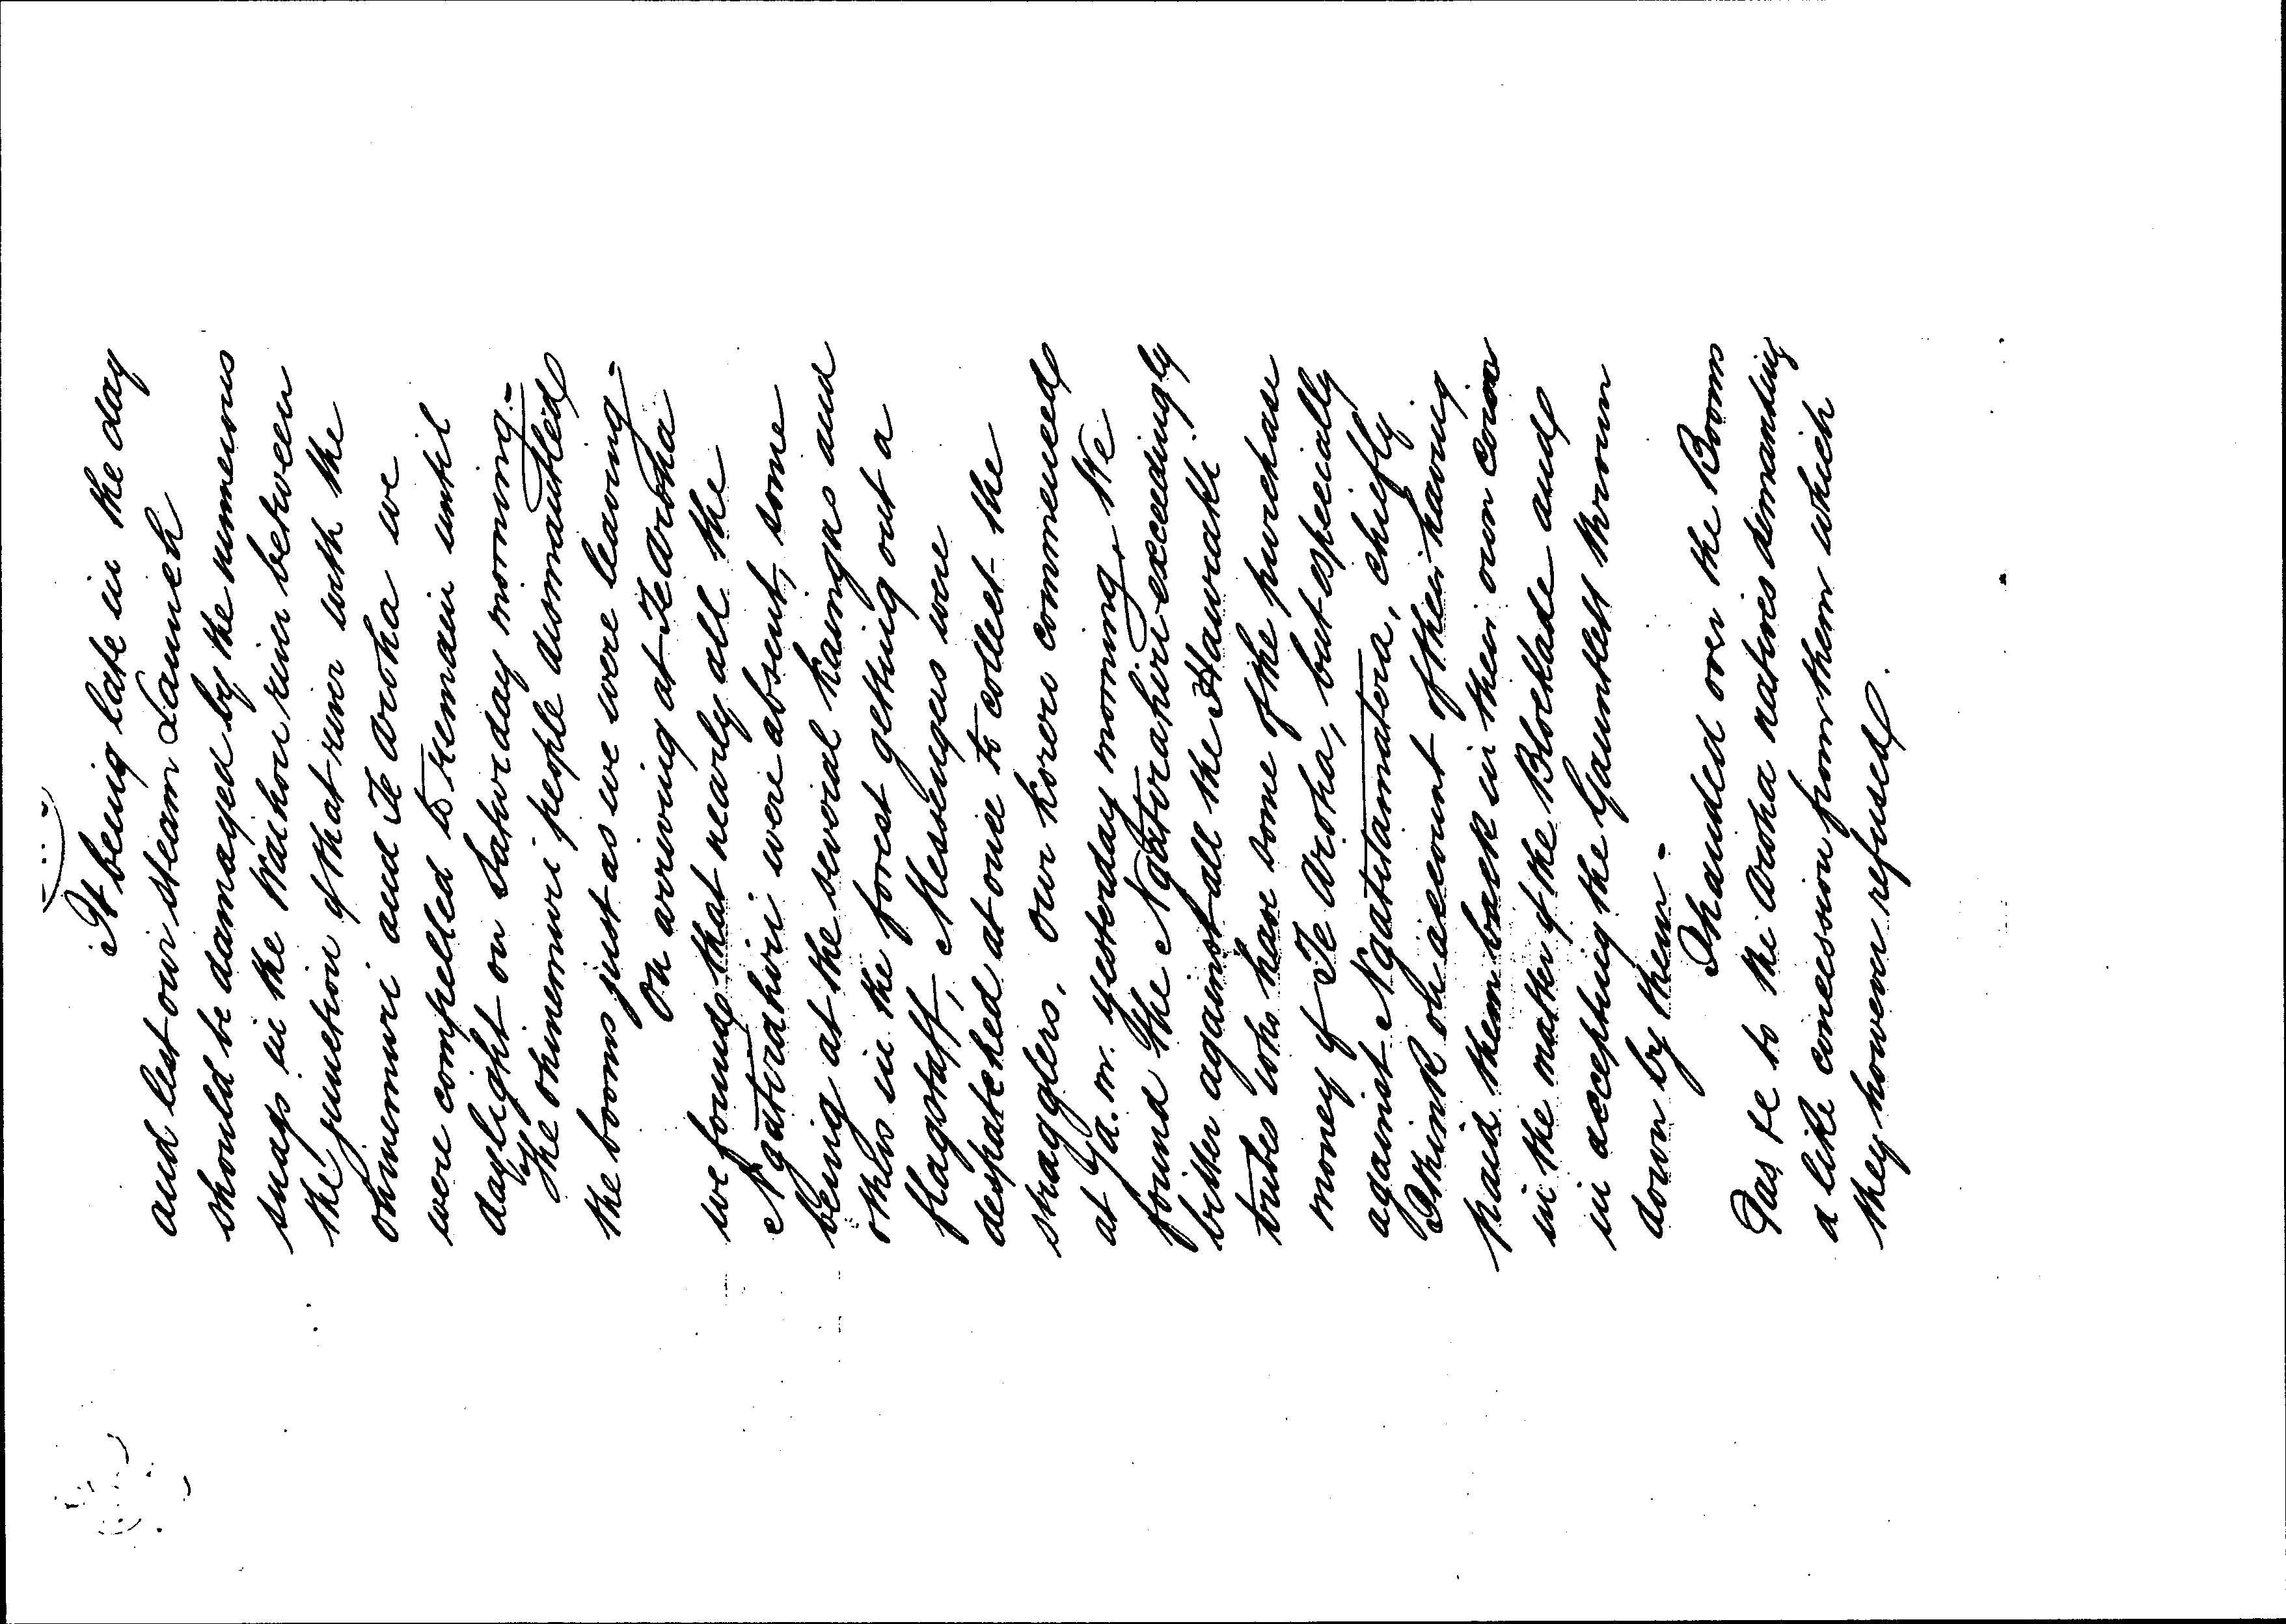 It being late in the day
and lest our steam Launch
should be damaged by the numerous
snags in the Waihou river between
the junction of that river with the
Ohinemuri and Te Aroha we
were compelled to remain until
daylight on Saturday morning -
The Ohinemuri people dismantled
the booms just as we were leaving -
On arriving at Te Aroha
we found that nearly all the
Ngatirahiri were absent, some
being at the several kaingas and
others in the forest getting out a
flagstaff, Messengers were
despatched at once to collect the
stragglers. Our korero commenced
at 9 a.m. yesterday morning, We
found the Ngatirahiri exceedingly
bitter against all the Hauraki
tribes who hear some of the purchase
money of Te Aroha, but especially
against Ngatitamatera, chiefly
I think on account of their having
paid them back in their own coin
in the matter of the Blockade and
in accepting the Gauntlett thrown
down by them -
I handed over the Boom
Pas te to the Aroha natives demanding
a like concession from them which
they however refused.